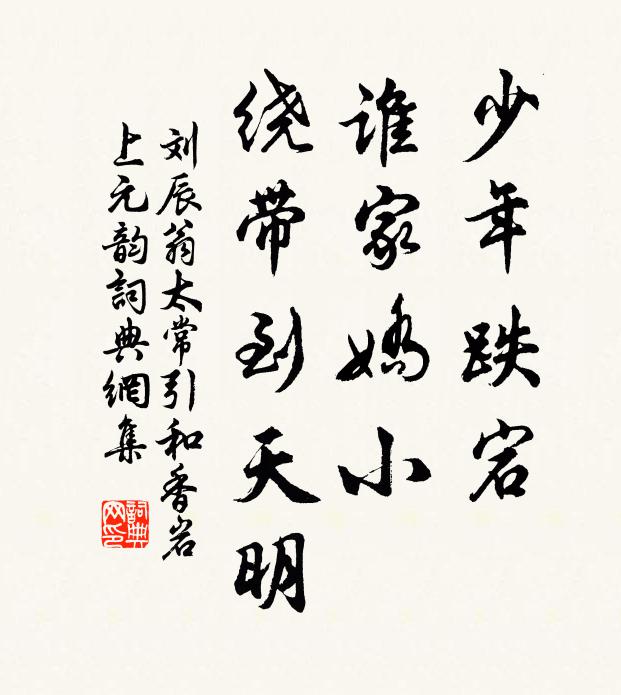 少年跌宕
谁家娇小
绕带到天明
刘辰翁太常引和香岩
上元韵詞典網集
詞典
网印